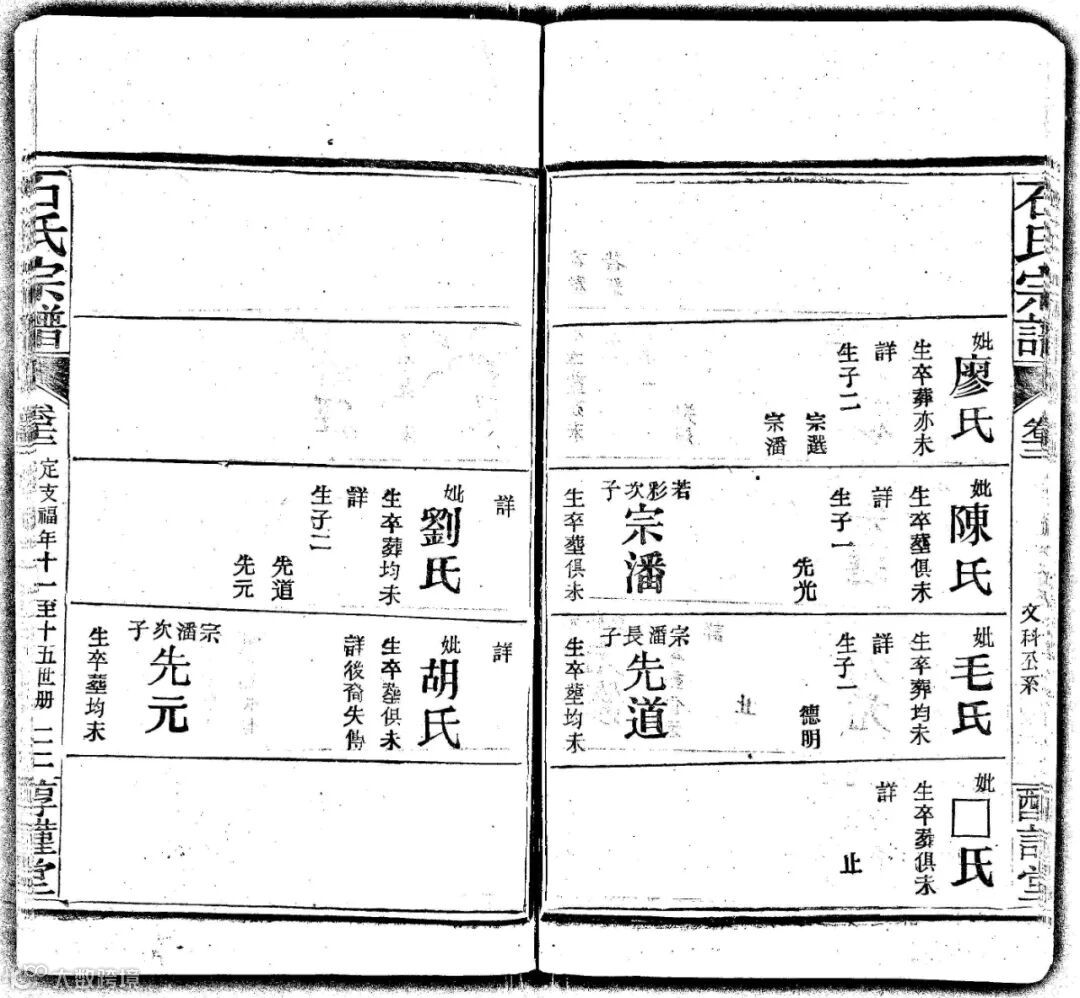 石氏宗譜
卷二
文科公系
妣
廖氏
生卒葬亦未
詳
生子二
宗選
宗潘
妣
陳氏
生卒塟俱未
詳
生子一
先光
若彩次子
宗潘
生卒塟俱未
妣
毛氏
生卒葬均未
詳
生子一
德明
止
宗潘長子
先道
生卒塟均未
妣
□氏
生卒葬俱未
詳
止
詳
妣
劉氏
生卒葬均未
詳
生子二
先道
先元
詳
妣
胡氏
生卒塟俱未
詳後裔失傳
宗潘次子
先元
生卒塟均未
石氏宗譜
定支福年十一至十五世册
大数跨境